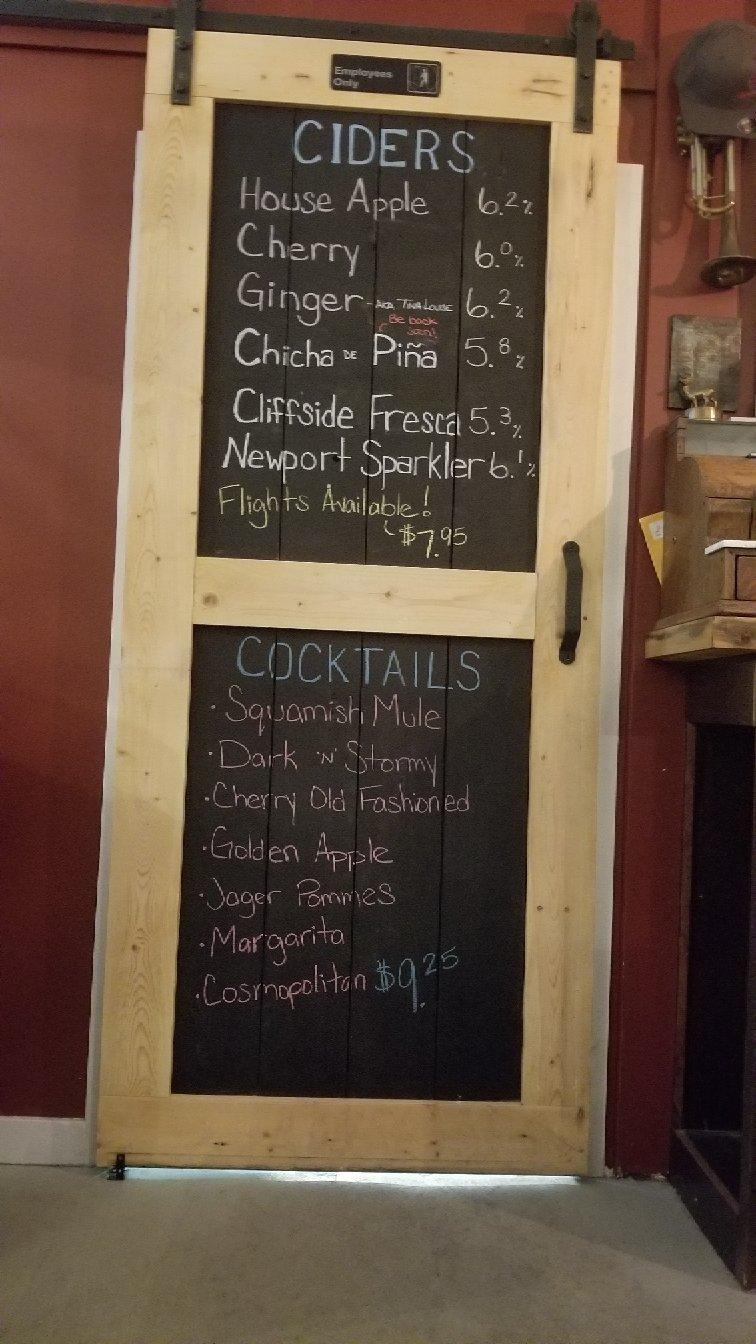 Employees
Only
CIDERS
House Apple 6.2%
Cherry 6.0%
Ginger - AKA. TINA LOUISE 6.2%
Be back
soon!
Chicha DE Piña 5.8%
Cliffside Fresca 5.3%
Newport Sparkler 6.1%
Flights Available!
$7.95
COCKTAILS
· Squamish Mule
· Dark 'N' Stormy
· Cherry Old Fashioned
· Golden Apple
· Jager Pommes
· Margarita
· Cosmopolitan $9.25